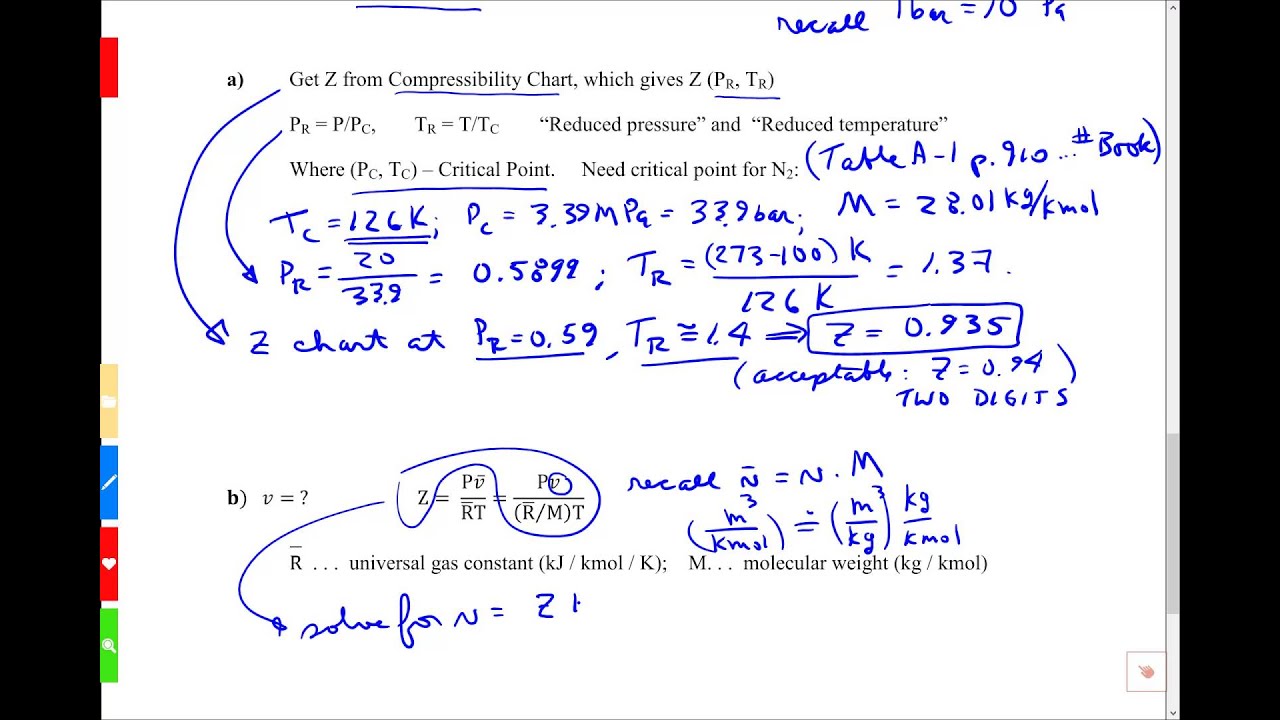 recall 1 bar = 10 Pa
a) Get Z from Compressibility Chart, which gives Z (PR, TR)
PR = P/PC, TR = T/TC “Reduced pressure” and “Reduced temperature”
Where (PC, TC) – Critical Point. Need critical point for N2: (Table A-1 p. 910 ... # Book)
TC = 126 K; PC = 3.39 MPa = 33.9 bar; M = 28.01 kg/kmol
PR = 20/33.9 = 0.5899 ; TR = (273-100) K / 126 K = 1.37.
Z chart at PR = 0.59, TR ≅ 1.4 ⇒ Z = 0.935
(acceptable: Z = 0.94)
TWO DIGITS
b) v = ? Z = Pv̄/R̄T = Pv/(R̄/M)T recall v̄ = v · M
(m³/kmol) ≐ (m³/kg) kg/kmol
R̄ . . . universal gas constant (kJ / kmol / K); M. . . molecular weight (kg / kmol)
solve for v = Z